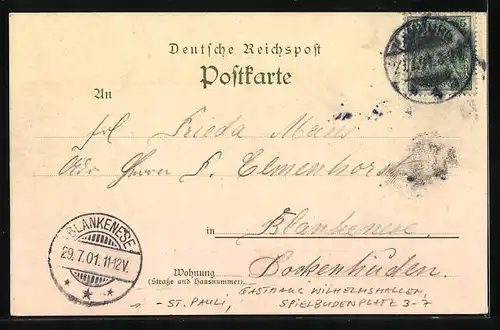 Deutsche Reichspost
Postkarte
An
Frl. Frieda Maus
Adr. Herrn F. Elmenhorst
in Blankenese
Wohnung Dockenhuden.
(Straße und Hausnummer)
BLANKENESE
29.7.01.11-12V.
- ST. PAULI, GASTHAUS WILHELMSHALLEN,
SPIELBUDENPLATZ 3-7